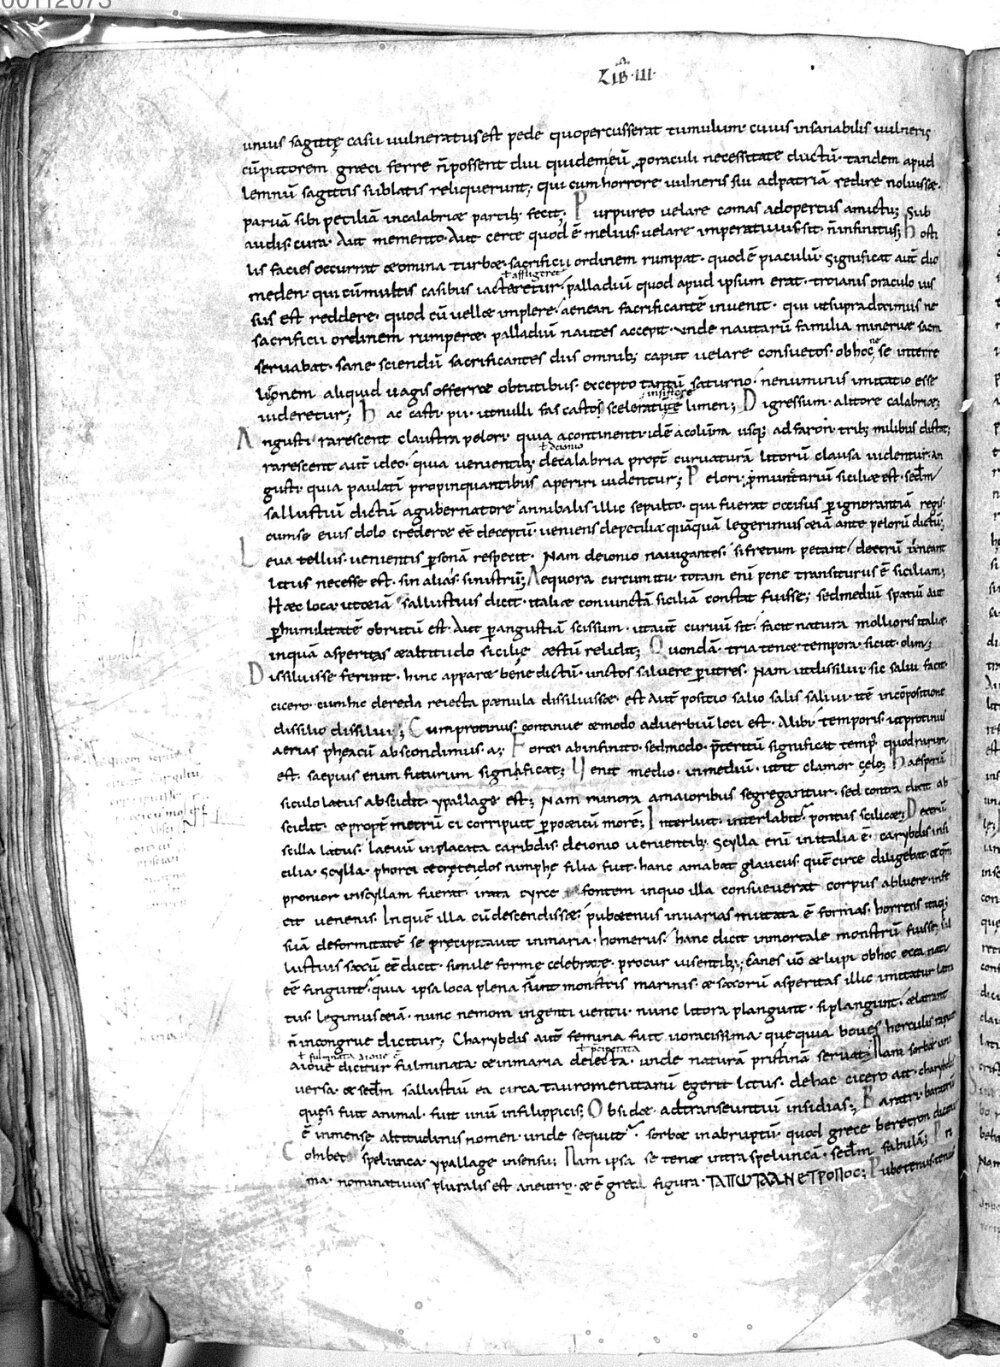 00112073
LIB III
unius sagittę casu uulneratus est pede quo percusserat tumulum cuius insanabilis uulneris
cū putorem greci ferre ñ possent diu quidem eū ꝓ oraculi necessitate ductū tandem apud
lemnū sagittis sublatis reliquerunt; qui cum horrore uulneris sui ad patriā redire noluisse
paruā sibi petiliā in calabriæ partib; fecit; Purpureo uelare comas adopertus amictu; Sub
audis cura. Aut memento. Aut certe quod ē melius uelare imperatiuus sit ñ infinitus; hosti
lis facies occurrat & omina turbæ sacrificii ordinem rumpat quod ē piaculū significat autē dio
ł affligeret
meden qui cū multis casibus iactaretur palladiū quod apud ipsum erat troianis oraculo ius
sus est reddere quod cū uellæ implere aenean sacrificantē inuenit qui
sacrificii ordinem rumperæ palladiū nautes accepit unde nautarū familia mineruæ sacra
seruabat sane sciendū sacrificantes diis omnib; caput uelare consuetos ob hoc ne se inter re
ligionem aliquid uagis offerræ obtutibus excepto tantū saturno ne numinis imitatio esse
insistere
uideretur; hac casti pii ut nulli fas castos sceleratūge limen; Digressum alitore calabriæ
Angusti rarescent claustra pelori quia a continenti idē a columna usq; ad faron trib; milibus
ł deionio
rarescent autē ideo quia uenientib; de calabria propt curuaturā litorū clausa uidentur an
gusti quia paulatī propinquantibus aperiri uidentur; Pelori ꝓmunturiū siciliæ est scdm
sallustiū dictū a gubernatore annibalis illic sepulto qui fuerat occisus ꝑ ignorantiā regis
cum se eius dolo crederæ ēē deceptū ueniens de petilia quāquā legerimus etiā ante pelorū dictū
Leua tellus uenientis ꝑsonā respexit Nam deionio nauigantes si fretum petant dextrū
litus necesse est sin alias sinistrū; Aequora circuitu totam enī pene transiturus ē siciliam
Hæc loca ut etiā sallustius dicit italiæ coniunctā siciliā constat fuisse; sed mediū spatiū aut
ꝑ humilitatē obrutū est Aut ꝑ angustiā scissum ut autē curuū sit facit natura mollioris italiæ
in quā asperitas & altitudo sicilię æstū relidit; Quondā tria tenet tempora sicut olim;
Dissiluisse ferunt hinc apparæ bene dictū unctos saluere ꝑ utres Nam ut dissilui sic salui facit
cicero cum hic de reda reiecta pænula dissiluisset est autē positio salio salis saliui itē in cōpositione
dissilio dissilui; Cum protinus continue & modo aduerbiū loci est Alibi temporis ut protinus
aerias pheacū abscondimus a; Foret ab infinito sed modo p̄teritū significat temp; quod rarum
est saepius enim futurum significat; Uenit medio in mediū ut it clamor celo; haesperiū
siculo latus abscidit ypallage est; Nam minora a maioribus segregantur sed contra dicit ab
scidit & propt metrū ci corripuit ꝑ poeticū morē; Interluit interlabit pontus scilicæ; Dextrū
scilla latus laeuū inplacata caribdis deionio uenientib; scylla enī in italia ē carybdis in si
cilia scylla phorci & creteidos nimphe filia fuit hanc amabat glaucus quē circe diligebat &
pronior in scyllam fuerat irata cyrce fontem in quo illa consueuerat corpus abluere infe
cit uenenis In quē illa cū descendissæ pubætenus in uarias mutata ē formas horrens itaq;
suā deformitatē se precipitauit in maria homerus hanc dicit inmortale monstrū fuisse sal
lustius saxū ēē dicit simile forme celebratæ procur uisentib; Canes uō & lupi ob hoc ex ea nati
ēē finguntur quia ipsa loca plena sunt monstris marinis & saxorū asperitas illic imitatur latra
tus legimus etiā nunc nemora ingenti uentu nunc litora plangunt si plangunt & latrant
ñ incongrue dicitur; Charybdis autē femina fuit uoracissima que quia boues herculis rapuit
ł fulminata a ioue ē ł p̄cipitata
a ioue dicitur fulminata & in maria deiecta unde naturā pristinā seruat Nam sorbæ uni
uersa & scdm sallustiū ea circa tauromenitanū egerit litus de hac cicero ait charybdis
quęsi fuit animal fuit unū in filippicis; Obsidæ ad transeuntiū insidias; Baratri baratrū
ē inmense altitudinis nomen unde sequit sorbæ in abruptū quod grece beretron dicunt
Cohibet spelunca ypallage in sensu; Nam ipsa se tenæ intra speluncā scdm fabulā; Pri
ma nominatiuus pluralis est & ē greca figura ΤΑΠΩΤΑΑΝΕΤΡΟΠΟC; Pube tenus